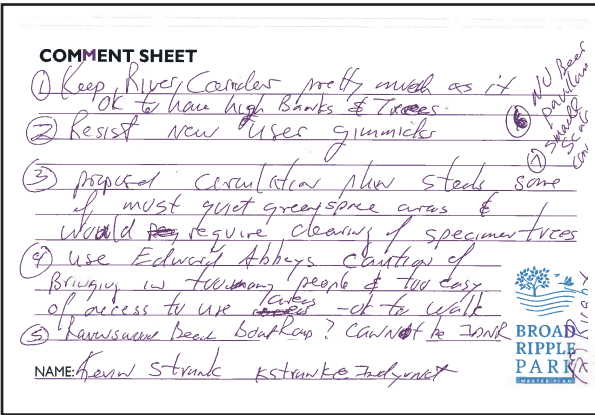 COMMENT SHEET
① Keep River Corridor pretty much as it
OK to have high Banks & Trees.
② Resist new user gimmicks
③ proposed circulation plan steals some
of most quiet greenspace areas &
would require clearing of specimen trees
④ use Edward Abbeys caution of
Bringing in too many people & too easy
of access to use areas - ok to walk
⑤ Ravenswood Beach Boat Ramp? Cannot be IDNR
NAME: Kevin Strunk
⑥ NO Beer
pavilion
⑦ small
scale
BROAD
RIPPLE
PARK
MASTER PLAN